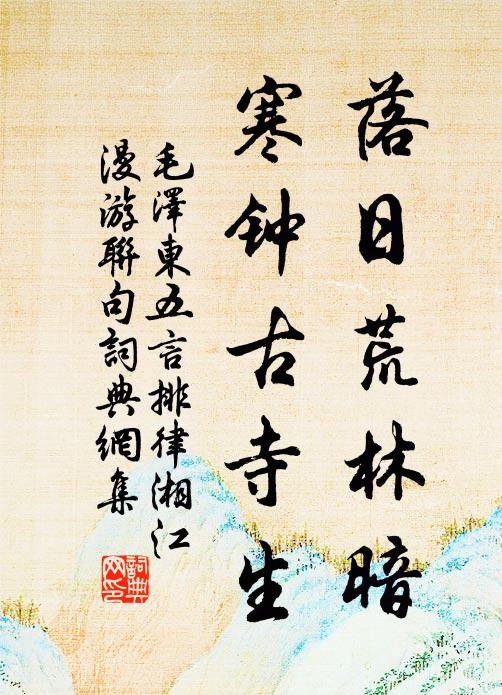 落日荒林暗
寒钟古寺生
毛澤東五言排律湘江
漫游聯句詞典網集
詞典
网印